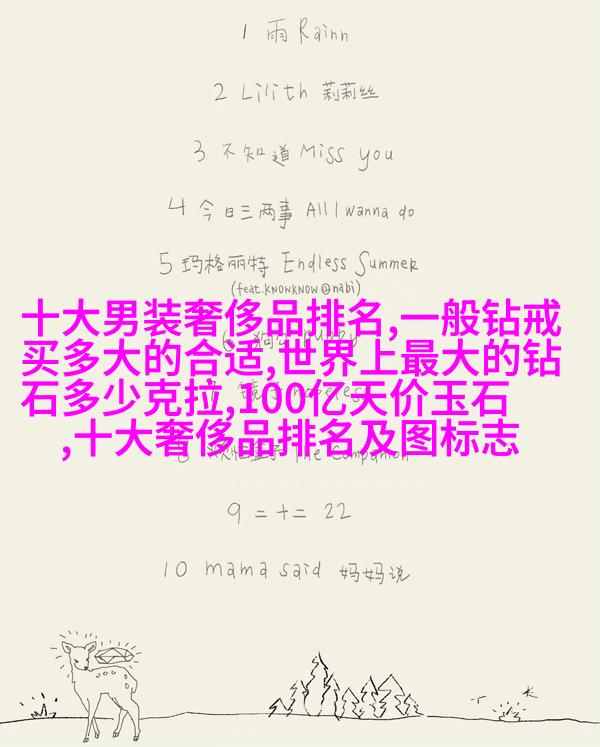 1 雨 Rainn
2 Lilith 莉莉丝
3 不知道 Miss you
4 今日三两事 All I wanna do
5 玛格丽特 Endless Summer
(feat.KNOWKNOW@nabi)
十大男装奢侈品排名,一般钻戒
买多大的合适,世界上最大的钻
石多少克拉,100亿天价玉石
,十大奢侈品排名及图标志
9 二十二 22
10 mama said 妈妈说